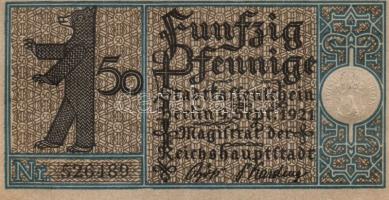 Funfzig
50 Pfennige
Stadtkassenschein
Berlin, 9. Sept. 1921
Magistrat der
Reichshauptstadt
Nr. 526489